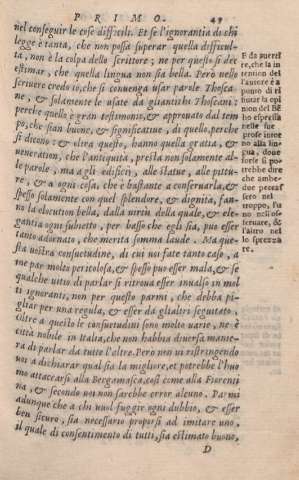 PRIMO. 49
nel conseguir le cose difficili. Et se l'ignorantia di chi
legge è tanta, che non possa superar quella difficul-
ta, non è la colpa dello scrittore; ne per questo si dee
estimar, che quella lingua non sia bella. Però nello
scriuere credo io, che si conuenga usar parole Thosca-
ne, & solamente le usate da gli antichi Thoscani:
perche quello è gran testimonio, & approuato dal tem
po, che sian buone, & significatiue, di quello, perche
si dicono: & oltra questo, hanno quella gratia, &
ueneration, che l'antiquità, presta non solamente al-
le parole, ma a gli edificij, alle statue, alle pittu-
re, & a ogni cosa, che è bastante a conseruarla, &
spesso solamente con quel splendore, & dignità, fan-
no la elocution bella, dalla uirtù della quale, & ele-
gantia ogni subietto, per basso che egli sia, può esser
tanto adornato, che merita somma laude. Ma que-
sta uostra consuetudine, di cui uoi fate tanto caso, a
me par molto pericolosa, & spesso può esser mala, & se
qualche uitio di parlar si ritroua esser inualso in mol
ti ignoranti, non per questo parmi, che debba pi-
gliar per una regula, & esser da gli altri seguitato.
Oltre a questo le consuetudini sono molto uarie, ne è
città nobile in Italia, che non habbia diuersa manie-
ra di parlar da tutte l'altre. Però non ui ristringendo
uoi a dichiarar qual sia la migliore, et potrebbe l'huo
mo attaccarsi alla Bergamasca, così come alla Fiorenti
na, & secondo uoi non sarebbe error alcuno. Parmi
adunque che a chi uuol fuggir ogni dubbio, & esser
ben sicuro, sia necessario proporsi ad imitare uno,
il quale di consentimento di tutti, sia estimato buono,
D
E da auerti-
re, che la in
tention del
l'autore è a
ponto di ri
butar la opi
nion del Bē
bo espressa
nelle sue
prose intor
no alla lin-
gua, doue
forse si po
trebbe dire
che ambe-
due peccas
sero nel
troppo, l'u
no nell'os-
seruare, &
l'altro nel
lo sprezza
re.